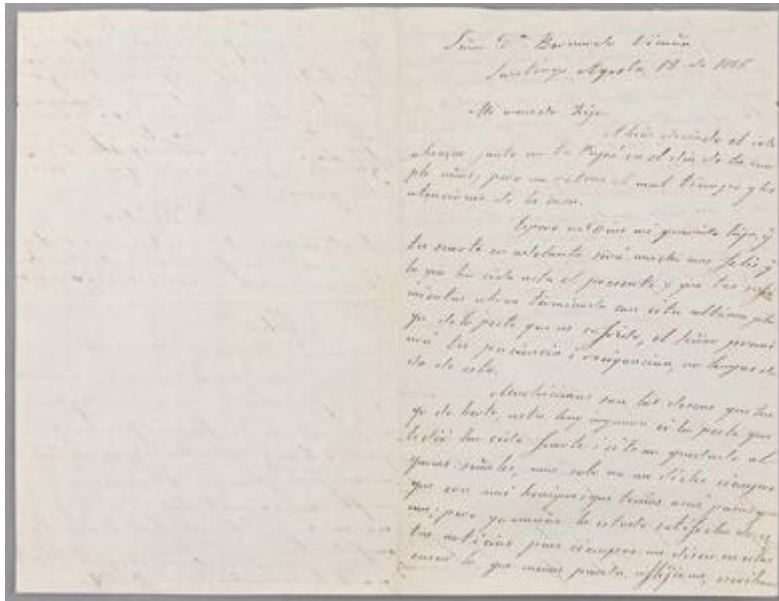 Señor Dn Bernardo Vicuña
Santiago Agosto 19 de 1865
Mi querido hijo
Abria deseado el
abrazar junto con tu Papá en el dia de tu cum
ple años, pero me retiene el mal tiempo y las
atenciones de la casa.
Espero en Dios mi querido hijo, q
tu suerte en adelante será mucho mas feliz q
lo que ha sido asta el presente y que tus sufri
mientos abran terminado con esta ultima pla
ga de la peste que as sufrido, el Señor premi
ará tu paciencia i resignacion, no tengas
da de esto.
Muchisimos son los deseos que ten
go de berte, asta hoy ignoro si la peste que
te dió ha sido fuerte i si te an quedado al
gunas señales, pues solo me an dicho siempre
que son mui benignas que tenias
pero yo nunca he estado satisfecha de es
tas noticias pues siempre me dicen en estos
casos lo que menos pueda aflijirme,